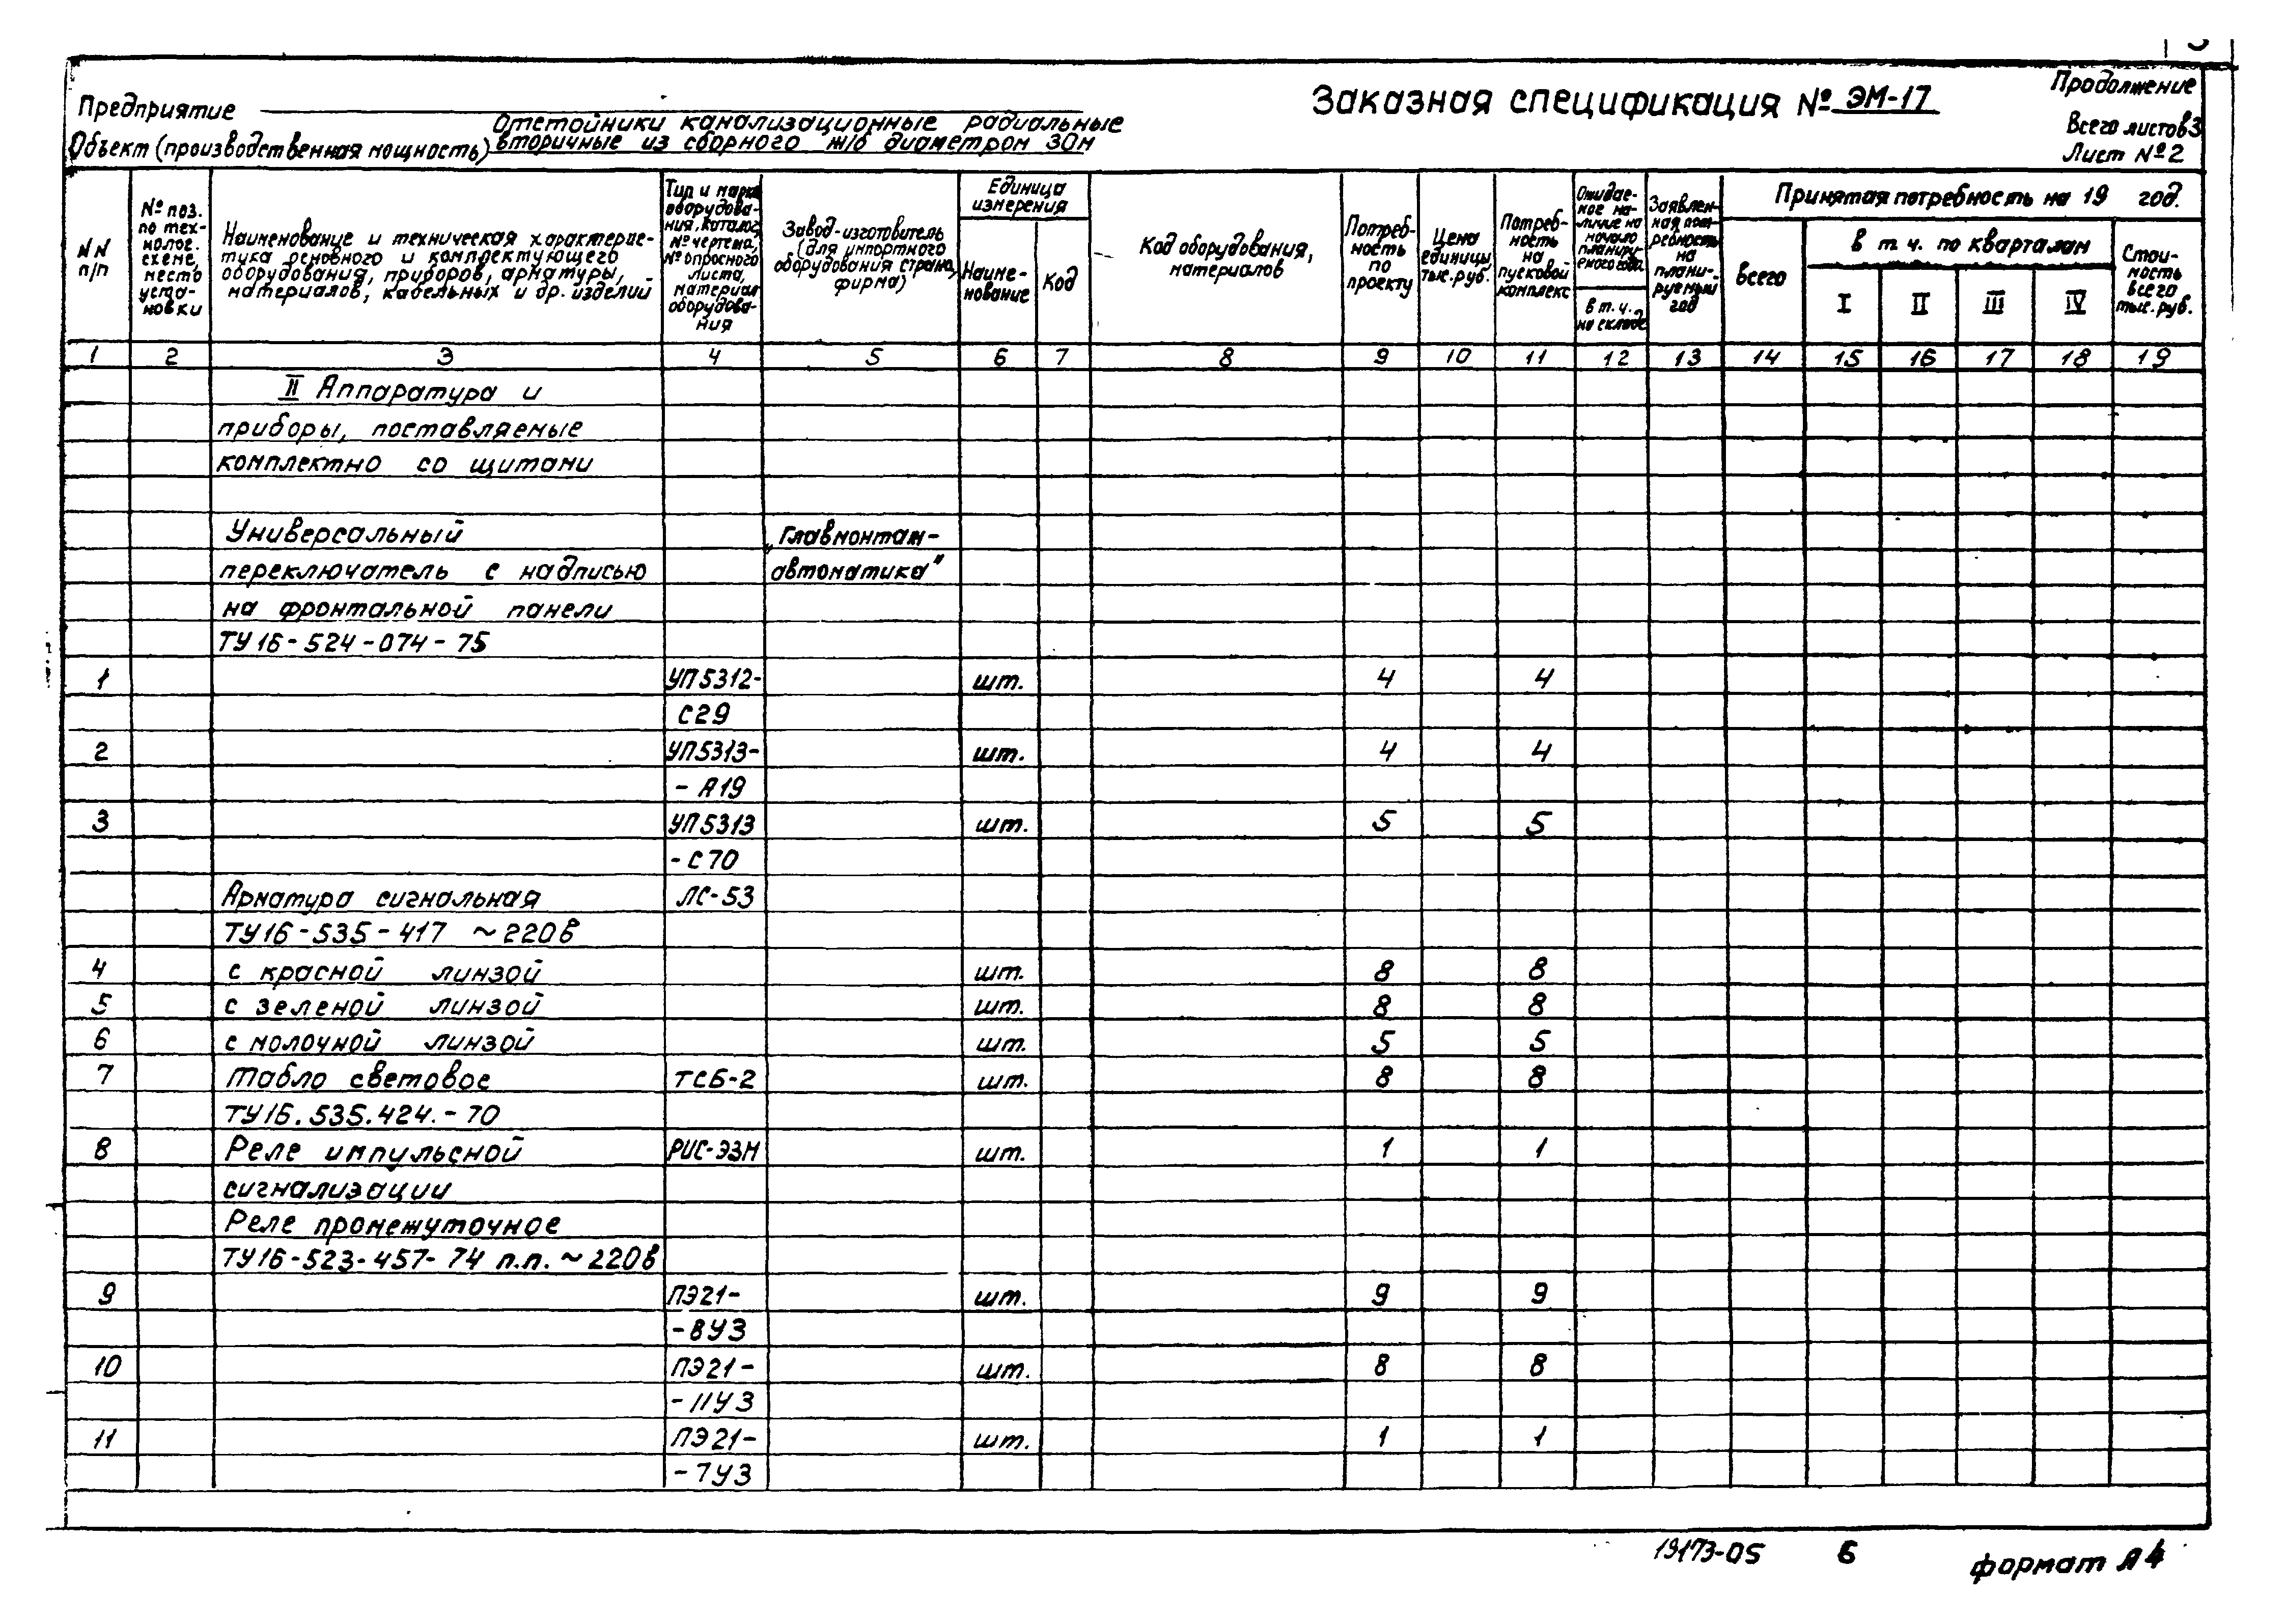 Предприятие
Заказная спецификация № ЭМ-17
Продолжение
Всего листов 3
Лист № 2
Объект (производственная мощность) Отстойники канализационные радиальные
вторичные из сборного ж/б диаметром 30м
NN
п/п
№ поз.
по тех-
нолог.
схеме,
место
уста-
новки
Наименование и техническая характерис-
тика основного и комплектующего
оборудования, приборов, арматуры,
материалов, кабельных и др. изделий
Тип и марка
оборудова-
ния, каталог,
№ чертежа,
№ опросного
листа,
материал
оборудова-
ния
Завод-изготовитель
(для импортного
оборудования страна,
фирма)
Единица
измерения
Наиме-
нование
Код
Код оборудования,
материалов
Потреб-
ность
по
проекту
Цена
единицы
тыс.руб.
Потреб-
ность
на
пусковой
комплекс
Ожидае-
мое на-
личие на
начало
планиру-
емого года
в т.ч.
на складе
Заявлен-
ная пот-
ребность
на
плани-
руемый
год
Принятая потребность на 19 год.
всего
в т.ч. по кварталам
I II III IV
Стои-
мость
всего
тыс.руб.
1 2 3 4 5 6 7 8 9 10 11 12 13 14 15 16 17 18 19
II Аппаратура и
приборы, поставляемые
комплектно со щитами
Универсальный „Главмонтаж-
переключатель с надписью автоматика"
на фронтальной панели
ТУ16-524-074-75
1 УП5312- шт. 4 4
С29
2 УП5313- шт. 4 4
-А19
3 УП5313 шт. 5 5
-С70
Арматура сигнальная ЛС-53
ТУ16-535-417 ~220в
4 с красной линзой шт. 8 8
5 с зеленой линзой шт. 8 8
6 с молочной линзой шт. 5 5
7 Табло световое ТСБ-2 шт. 8 8
ТУ16.535.424.-70
8 Реле импульсной РИС-ЭЗМ шт. 1 1
сигнализации
Реле промежуточное
ТУ16-523-457-74 п.п. ~220в
9 ПЭ21- шт. 9 9
-8У3
10 ПЭ21- шт. 8 8
-11У3
11 ПЭ21- шт. 1 1
-7У3
19173-05 6 формат А4